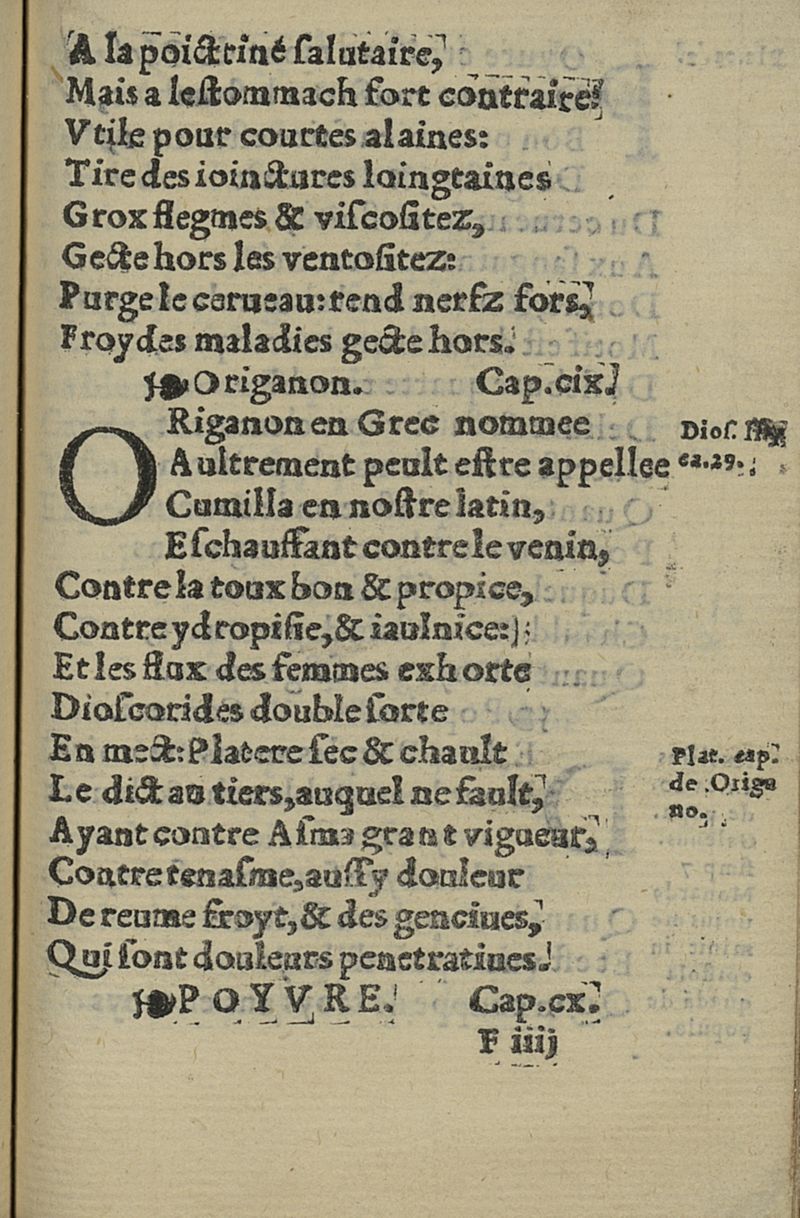 A la poictriné ſalutaire,
Mais a leſtommach fort contraire:
Vtile pour courtes alaines:
Tire des ioinctures loingtaines
Grox flegmes & viſcoſitez,
Gecte hors les ventoſitez:
Purge le cerueau: rend nerfz fors,
Froydes maladies gecte hors.
Origanon. Cap.cix.
ORiganon en Grec nommee
Aultrement peult eſtre appellee
Cumilla en noſtre latin,
Eſchauffant contre le venin,
Contre la toux bon & propice,
Contre ydropiſie, & iaulnice:
Et les flux des femmes exhorte
Dioſcorides double ſorte
En mect: Platere ſec & chault
Le dict au tiers, auquel ne fault,
Ayant contre Aſme grant vigueur,
Contre tenaſme, auſſy douleur
De reume froyt, & des genciues,
Qui ſont douleurs penetratiues.
POYVRE. Cap.cx.
F iiij
Dioſ.
ca.29.
Plat. cap.
de Origa
no.